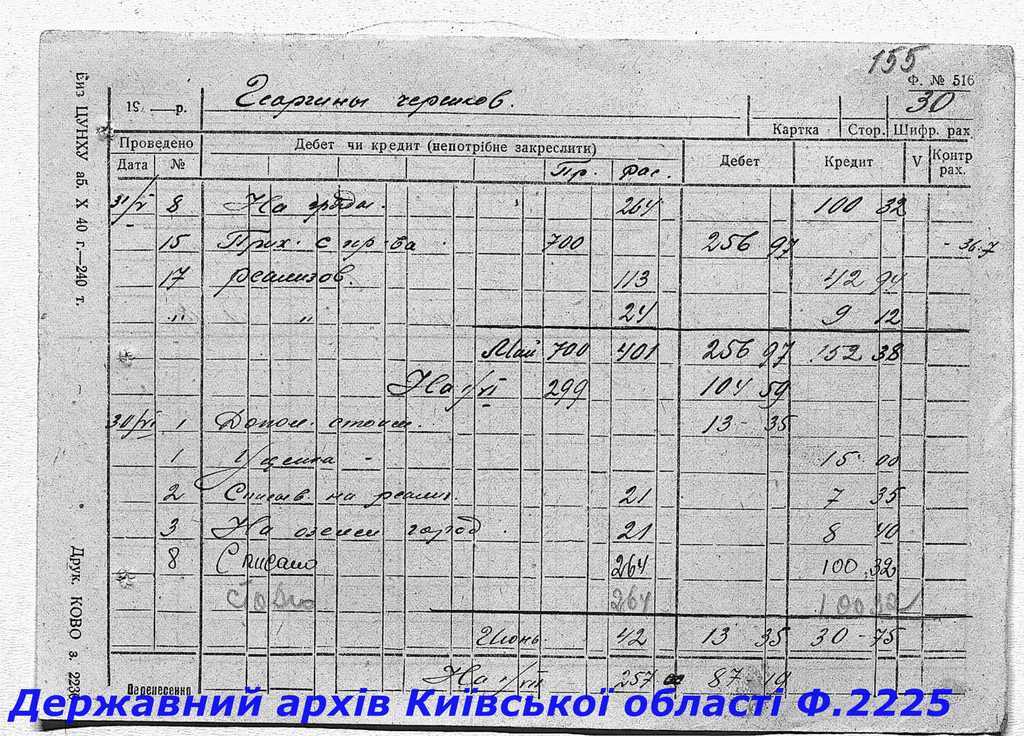 155
Ф. № 516
19 —р. Георгины черенков. 30
Картка Стор. Шифр. рах.
Проведено Дебет чи кредит (непотрібне закреслити) Дебет Кредит V Контр рах.
Дата № Пр. Рас.
31/V 8 На гряды. 264 100 32
15 Прих. с пр-ва 700 256 97 36-7
17 реализов. 113 42 94
" " 24 9 12
Май 700 401 256 97 152 38
На 1/VI 299 104 59
30/VI 1 Допол. стоим. 13-35
1 Уценка - 15 00
2 Списыв. на реализ. 21 7 35
3 На озелен город 21 8 40
8 Списано 264 100 32
264 100 32
Июнь. 42 13 35 30-75
На 1/VII 257 87-19
Перенесено
Бнз ЦУНХУ аб. X 40 г.—240 т.
Друк. КОВО з. 2236
Державний архів Київської області Ф.2225